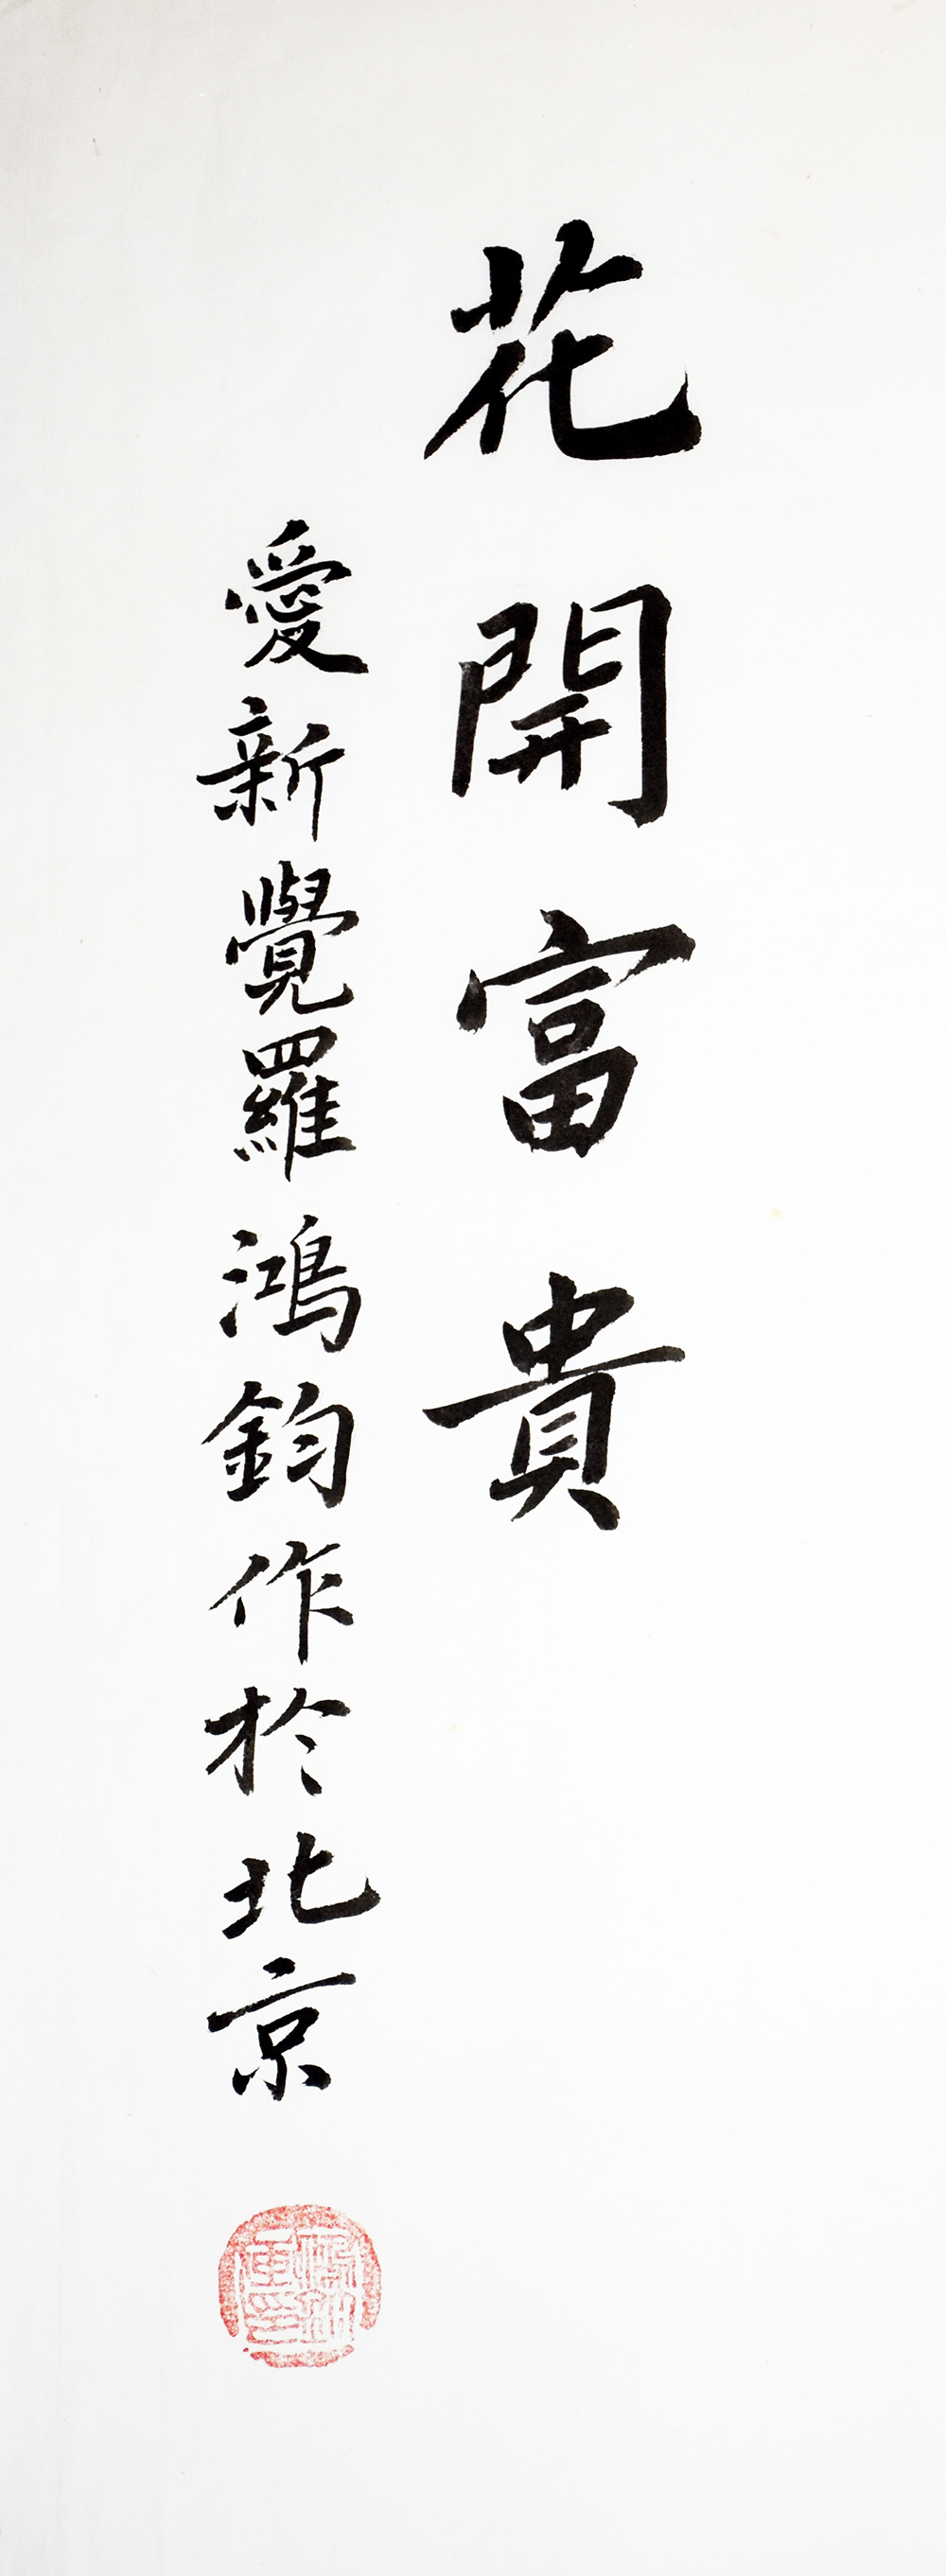 花開富貴
愛新覺羅鴻鈞作於北京